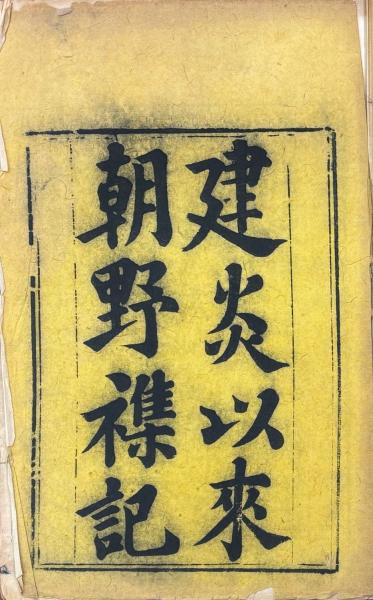 建炎以來
朝野襍記